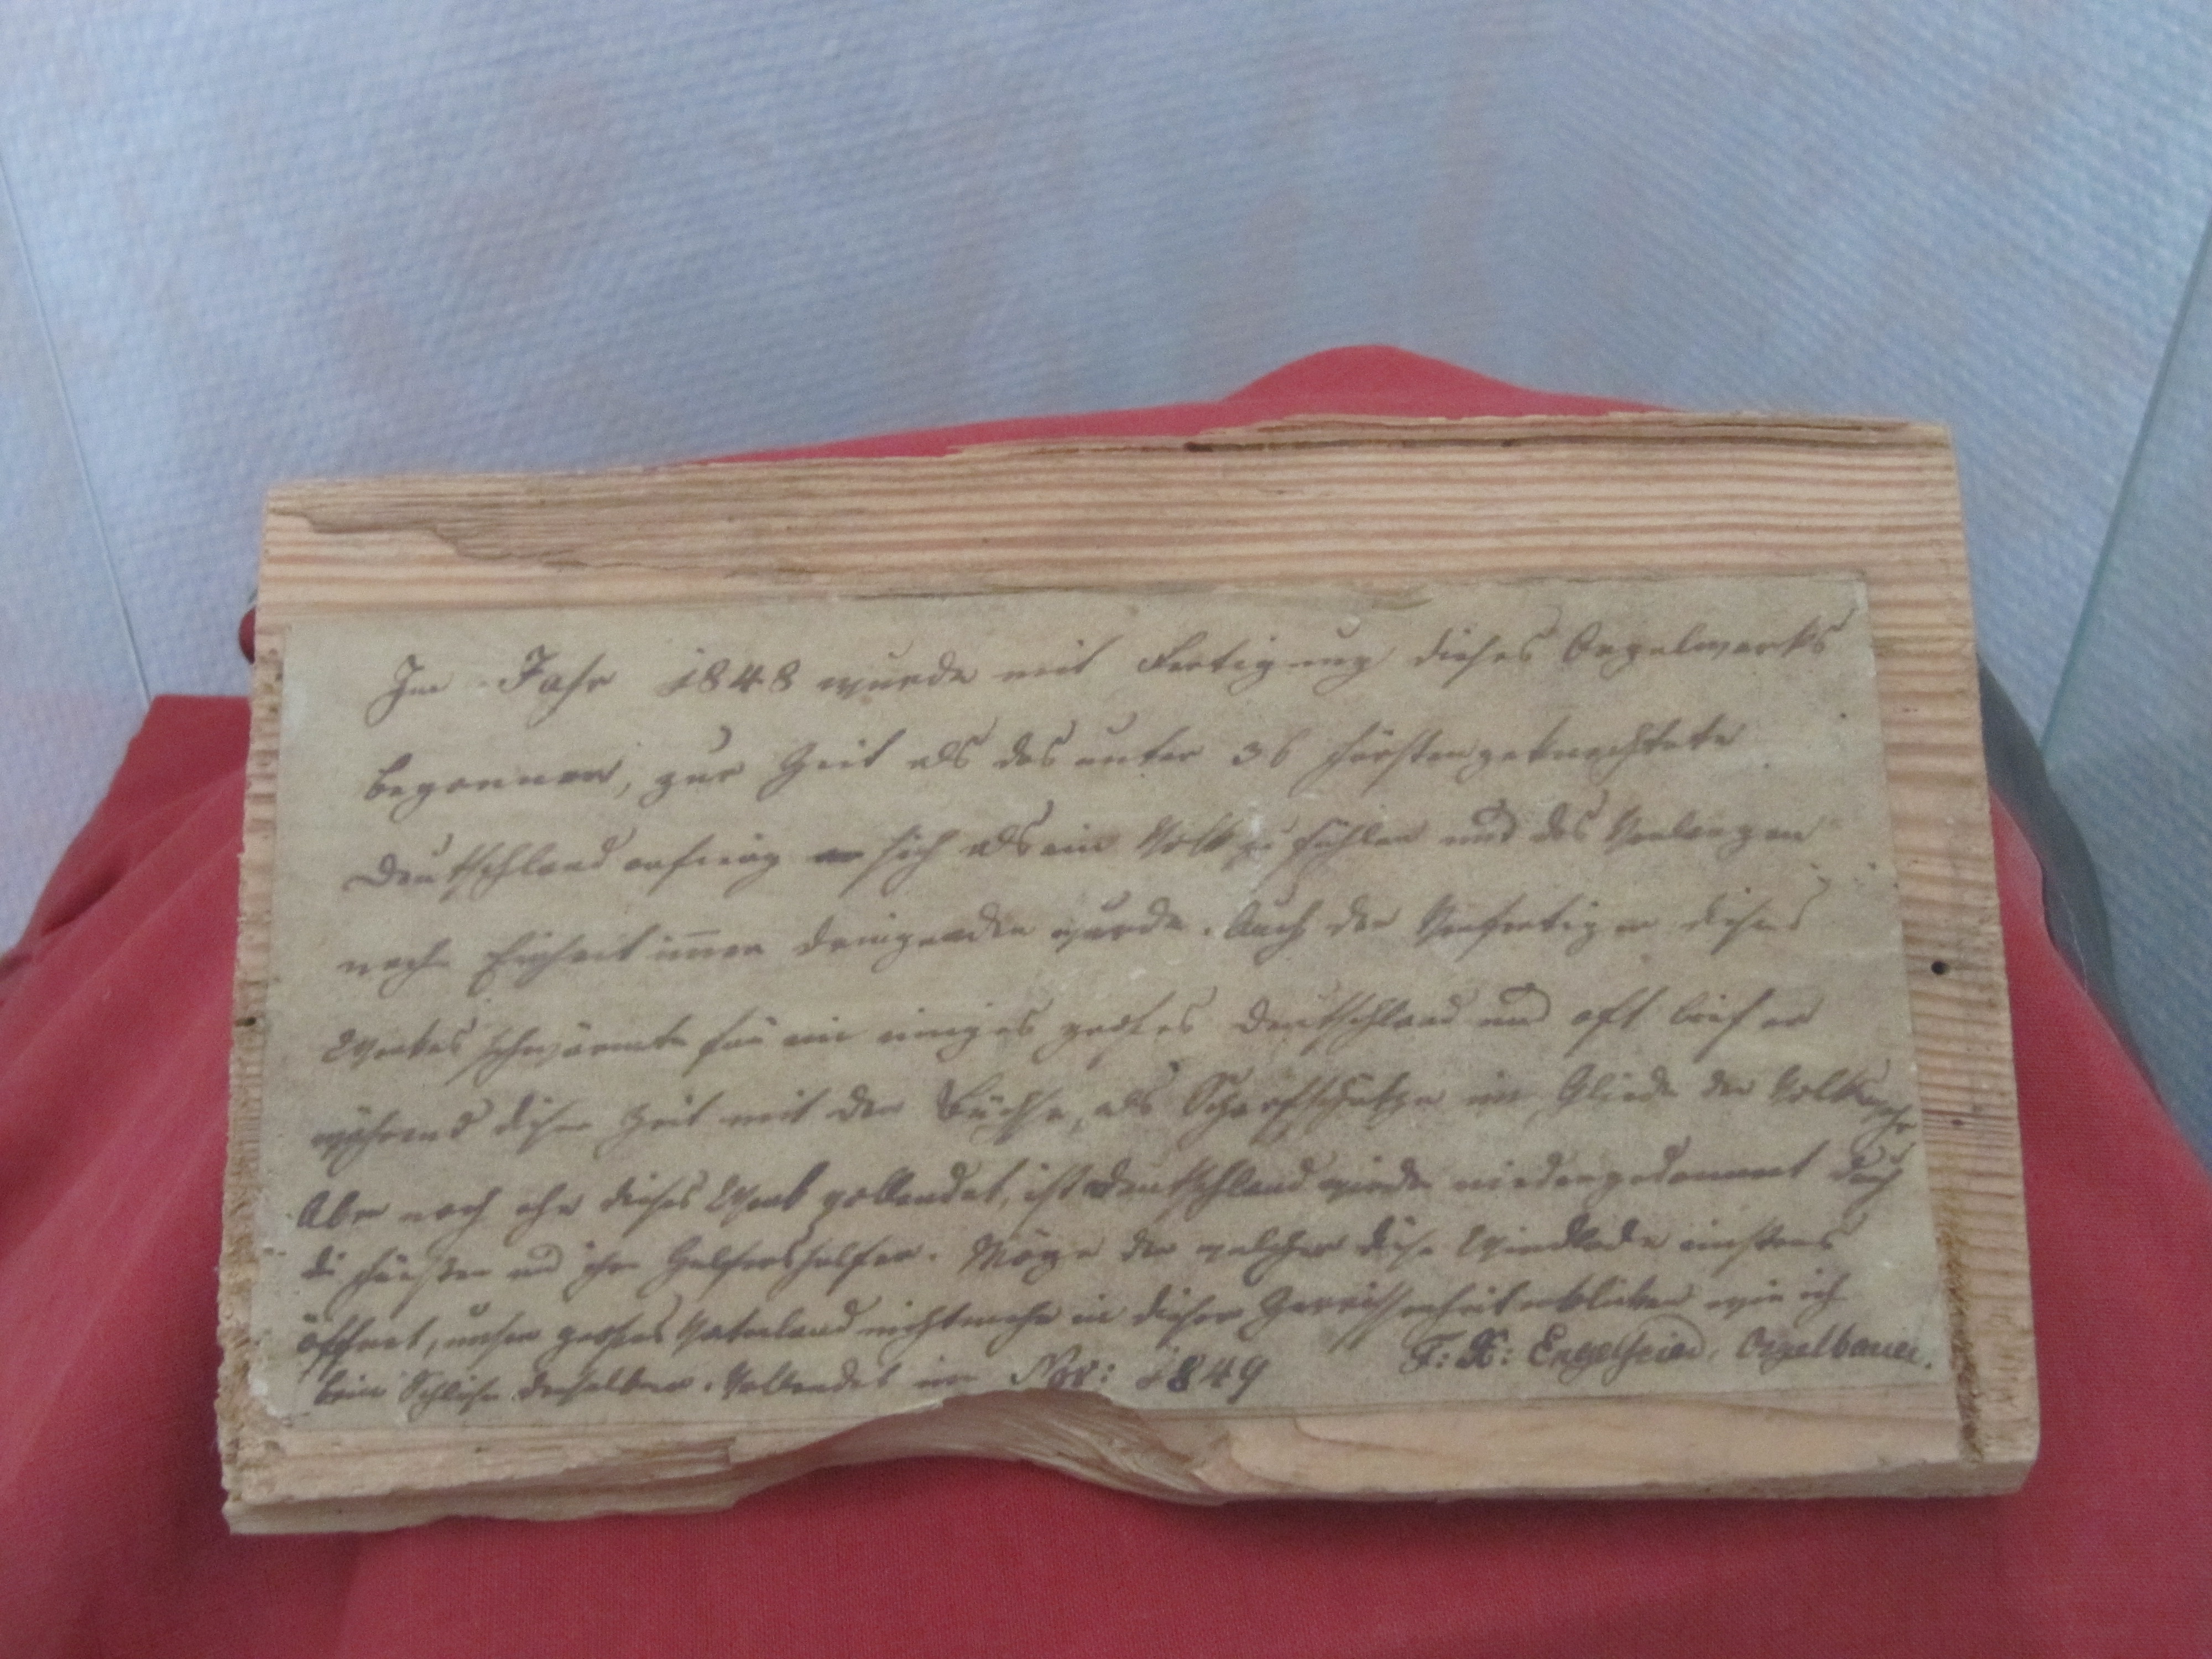 Im Jahr 1848 wurde mit Fertigung dieses Orgelwerks
begonnen, zur Zeit als das unter 36 Fürsten geknechtete
Deutschland anfing sich als ein Volk zu fühlen und das Verlangen
nach Einheit immer dringender wurde. Auch der Verfertiger dieses
Werkes schwärmte für ein einiges großes Deutschland und oft lief er
während dieser Zeit mit der Büchse, als Scharfschütze im Gliede der Volkswehr
Aber noch ehe dieses Werk vollendet, ist Deutschland wieder niedergedonnert durch
die Fürsten und ihre Helfershelfer. Möge der welcher diese Windlade einstens
öffnet, unser großes Vaterland nicht mehr in dieser Zerrissenheit erblicken wie ich
beim Schluße derselben. Vollendet im Nov: 1849 F: X: Engelfried, Orgelbauer.